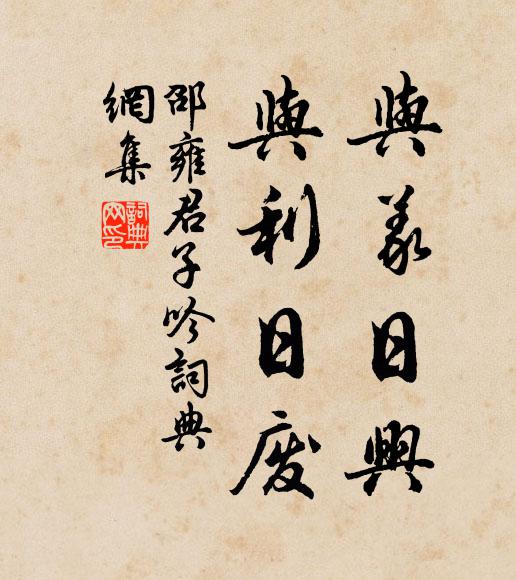 與義日興
與利日廢
邵雍君子吟詞典
網集
詞典
網印